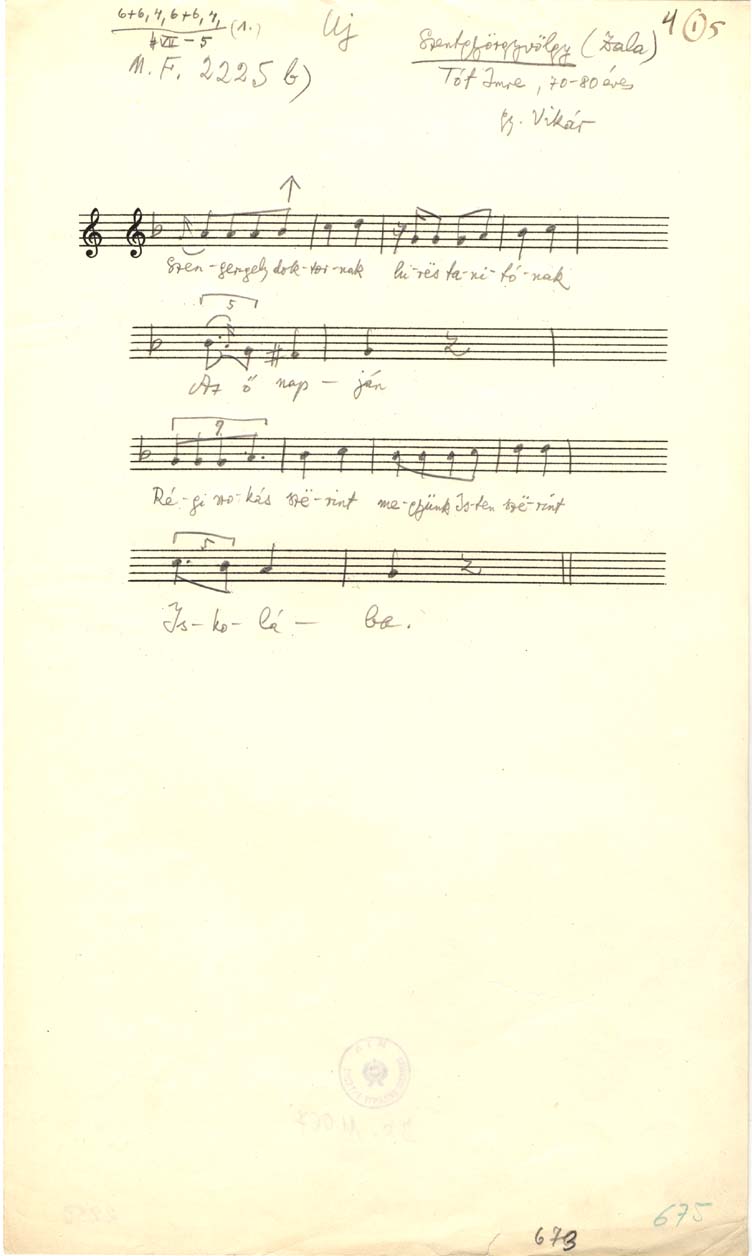 6+6, 4, 6+6, 4, (1.)
VII - 5
M. F. 2225 b)
Új
Szentgyörgyvölgy (Zala)
4 1 5
Tót Imre, 70-80 éves
gy. Vikár
Szen-gergely dok-tor-nak hi-rës ta-ni-tó-nak
5
Az ő nap - ján
Ré-gi szo-kás szë-rint me-gyünk Is-ten szë-rint
5
Is-ko-lá - ba.
675
673